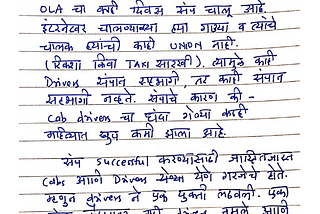 OLA चा काही दिवस संप चालू आहे.
इंटरनेटवर चालणाऱ्या ह्या गाड्या व त्यांचे
चालक ह्यांची काही UNION नाही.
(रिक्शा किंवा TAXI सारखी). त्यामुळे काही
Drivers संपात सहभागी, तर काही संपात
सहभागी नव्हते. संपाचे कारण की -
Cab drivers चा धंदा गेल्या काही
महिन्यात खुप कमी झाला आहे.
संप successful करण्यासाठी जास्तितजास्त
Cabs आणि Drivers येणं गरजेचे होते.
म्हणून drivers ने एक युक्ती लढवली. एका